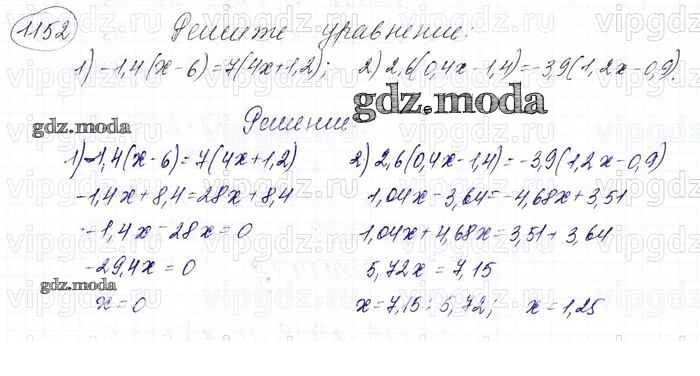 1152 Решите уравнение:
1) -1,4(x-6)=7(4x+1,2); 2) 2,6(0,4x-1,4)=-3,9(1,2x-0,9).
gdz.moda
gdz.moda
Решение
1) -1,4(x-6)=7(4x+1,2)
-1,4x+8,4=28x+8,4
-1,4x-28x=0
-29,4x=0
gdz.moda
x=0
2) 2,6(0,4x-1,4)=-3,9(1,2x-0,9)
1,04x-3,64=-4,68x+3,51
1,04x+4,68x=3,51+3,64
5,72x=7,15
x=7,15:5,72; x=1,25